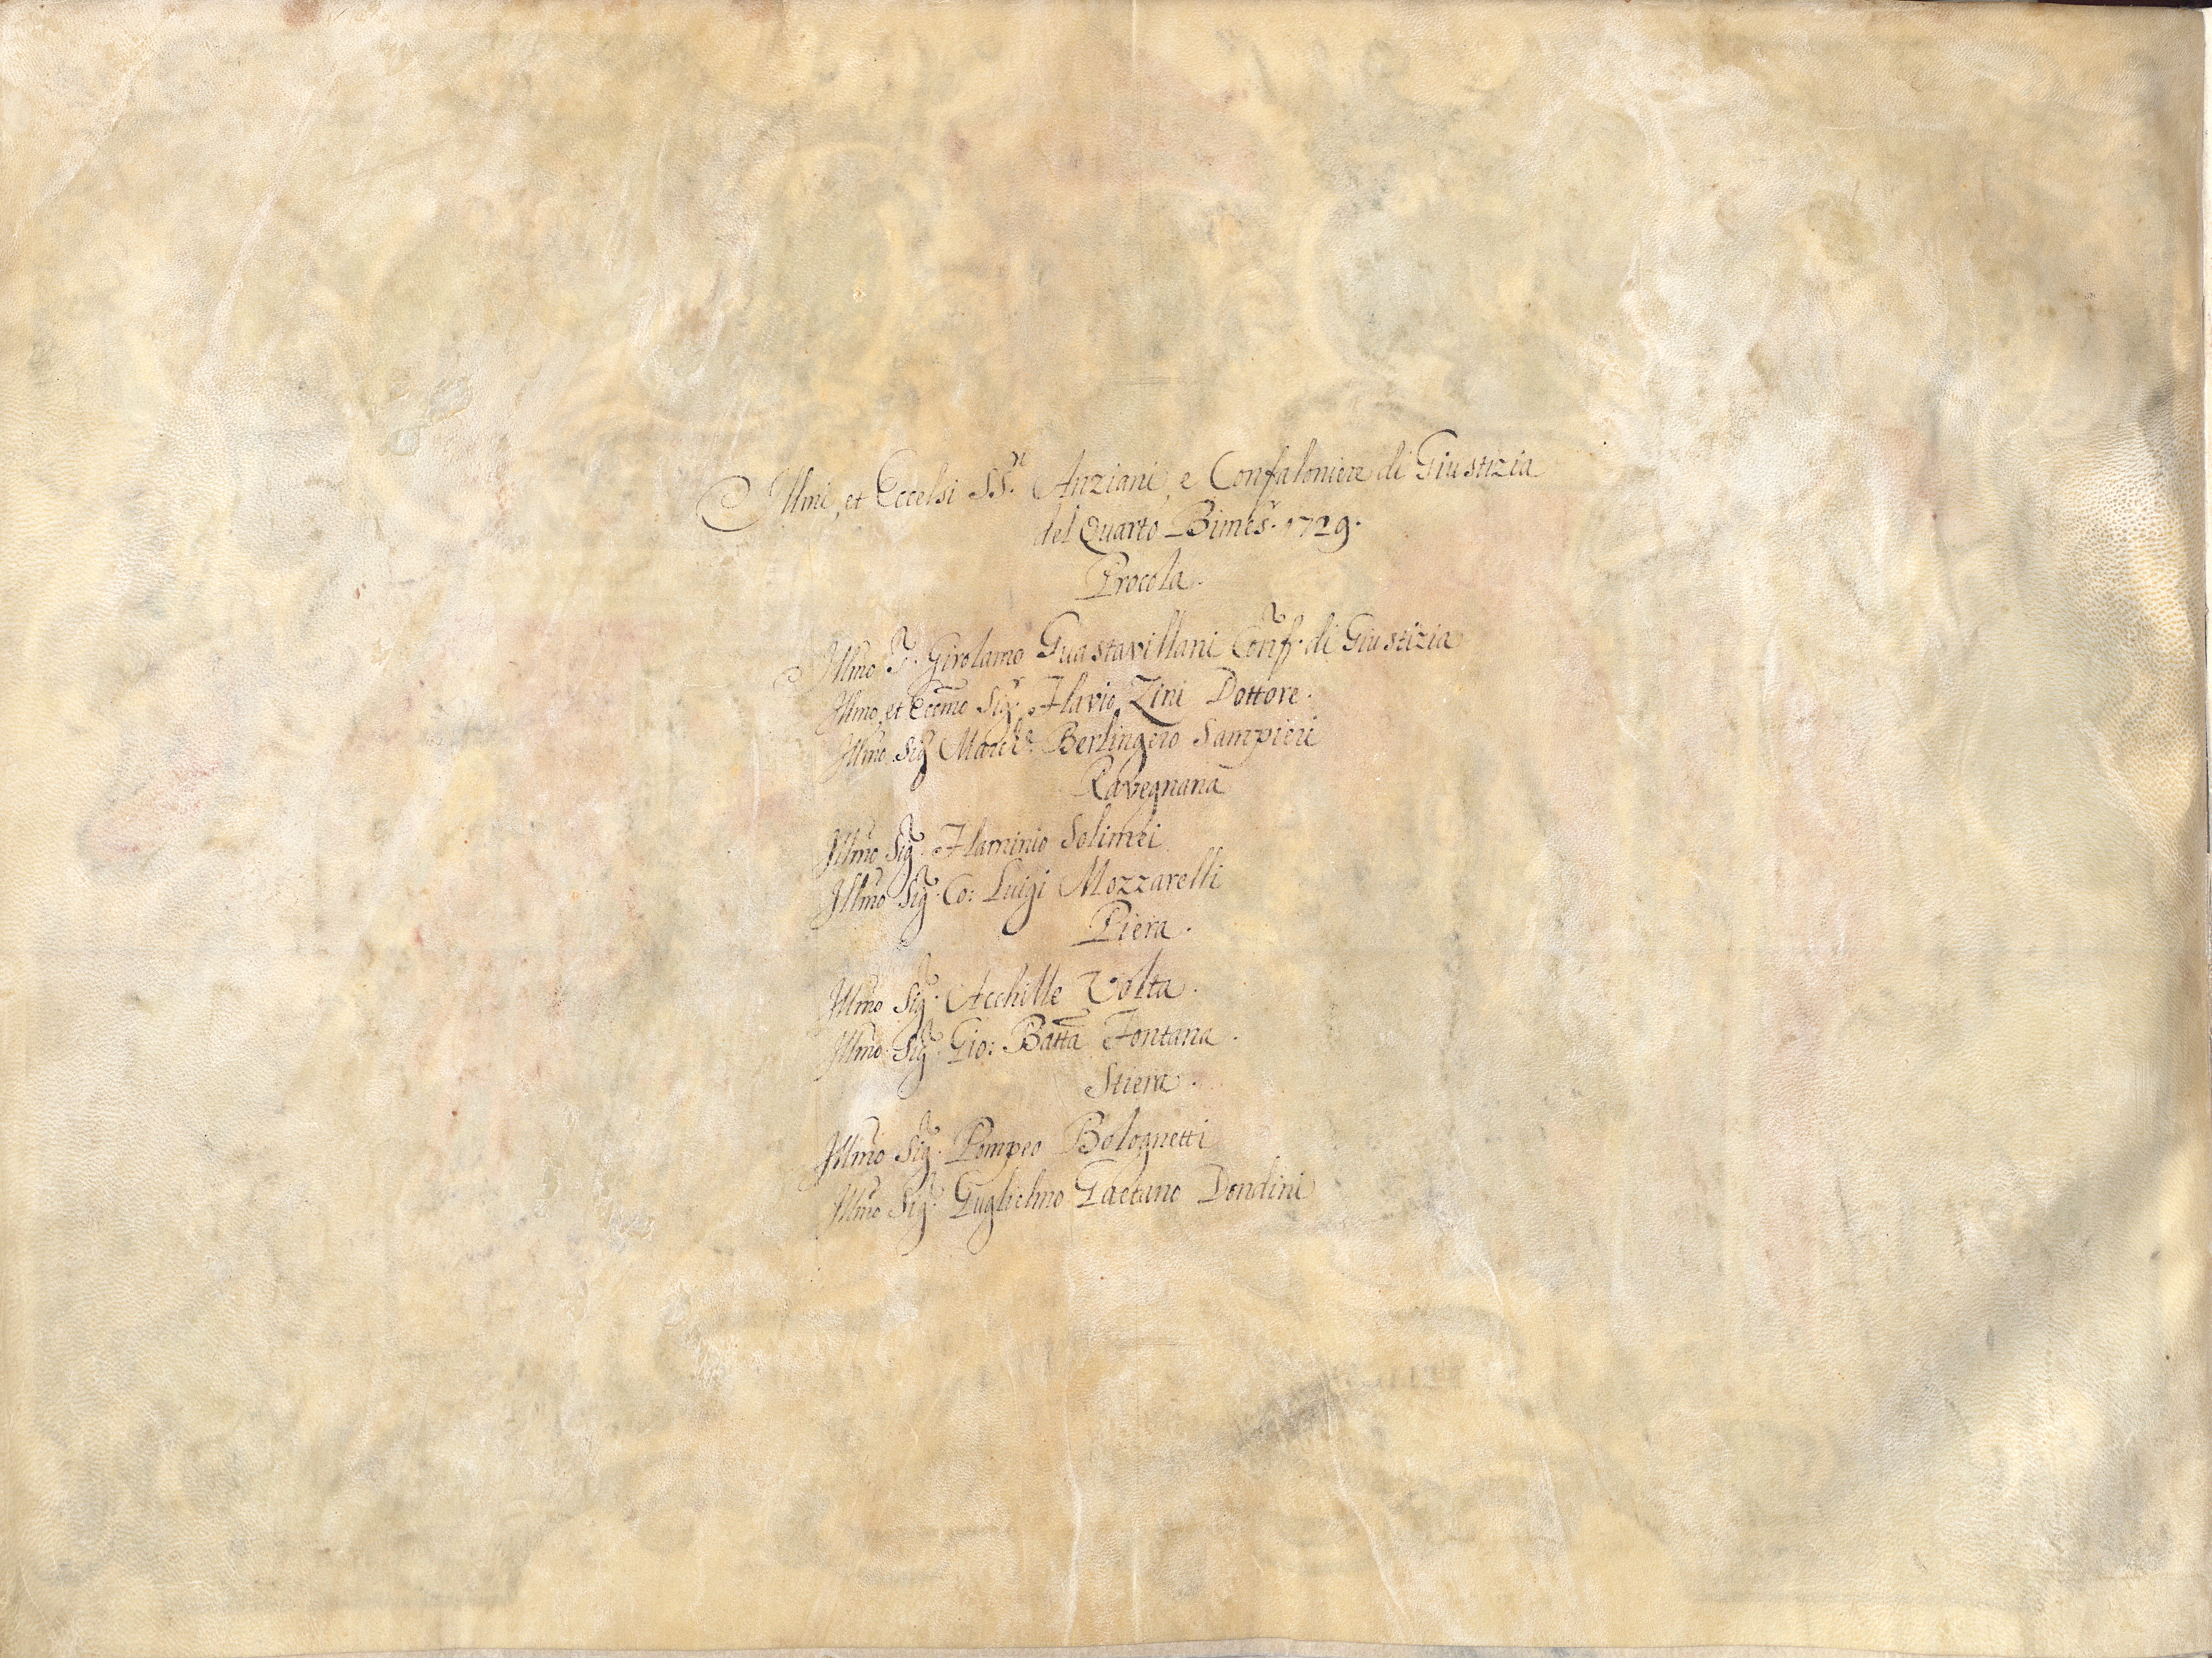 Illmi, et Eccelsi SS.ri Anziani, e Confaloniere di Giustizia
del Quarto Bimes.r 1729.
Procola.
Illmo S.r Girolamo Guastavillani Conf.r di Giustizia
Illmo, et Eccmo Sig.r Flavio Zini Dottore.
Illmo Sig.r March.e Berlingero Sampieri
Ravegnana
Illmo Sig.r Flaminio Solimei
Illmo Sig.r Co: Luigi Mozzarelli
Piera.
Illmo Sig.r Acchille Volta.
Illmo Sig.r Gio: Batta Fontana.
Stiera.
Illmo Sig.r Pompeo Bolognetti
Illmo Sig.r Guglielmo Gaetano Dondini